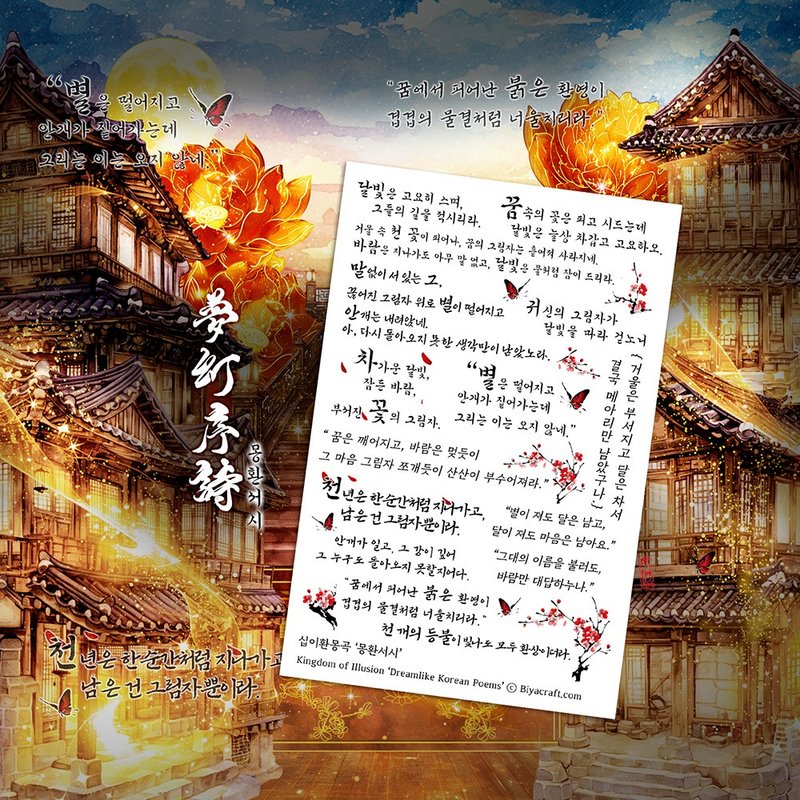 “별은 떨어지고
안개가 짙어가는데
그리는 이는 오지 않네.”
“꿈에서 피어난 붉은 환영이
겹겹의 물결처럼 너울치리라.”
夢幻序詩
몽환서시
천년은 한 순간처럼 지나가고
남은 건 그림자뿐이라.
달빛은 고요히 스며,
그들의 길을 적시리라.
꿈 속의 꽃은 피고 시드는데
달빛은 늘상 차갑고 고요하오.
거울 속 천 꽃이 피어나, 꿈의 그림자는 흩어져 사라지네.
바람은 지나가도 아무 말 없고, 달빛은 물처럼 잠이 드리라.
말없이 서 있는 그,
끊어진 그림자 위로 별이 떨어지고
안개는 내려앉네.
아, 다시 돌아오지 못한 생각만이 남았노라.
귀신의 그림자가
달빛을 따라 걷노니
(거울은 부서지고 달은 차서
결국 메아리만 남았구나)
차가운 달빛,
잠든 바람,
부서진 꽃의 그림자.
“별은 떨어지고
안개가 짙어가는데
그리는 이는 오지 않네.”
“꿈은 깨어지고, 바람은 멎듯이
그 마음 그림자 쪼개듯이 산산이 부수어져라.”
천년은 한 순간처럼 지나가고,
남은 건 그림자뿐이라.
“별이 져도 달은 남고,
달이 져도 마음은 남아요.”
“그대의 이름을 불러도,
바람만 대답하누나.”
안개가 일고, 그 강이 깊어
그 누구도 돌아오지 못할지어다.
“꿈에서 피어난 붉은 환영이
겹겹의 물결처럼 너울치리라.”
천 개의 등불이 빛나도 모두 환상이더라.
십이환몽곡 ‘몽환서시’
Kingdom of Illusion ‘Dreamlike Korean Poems’ ⓒ Biyacraft.com